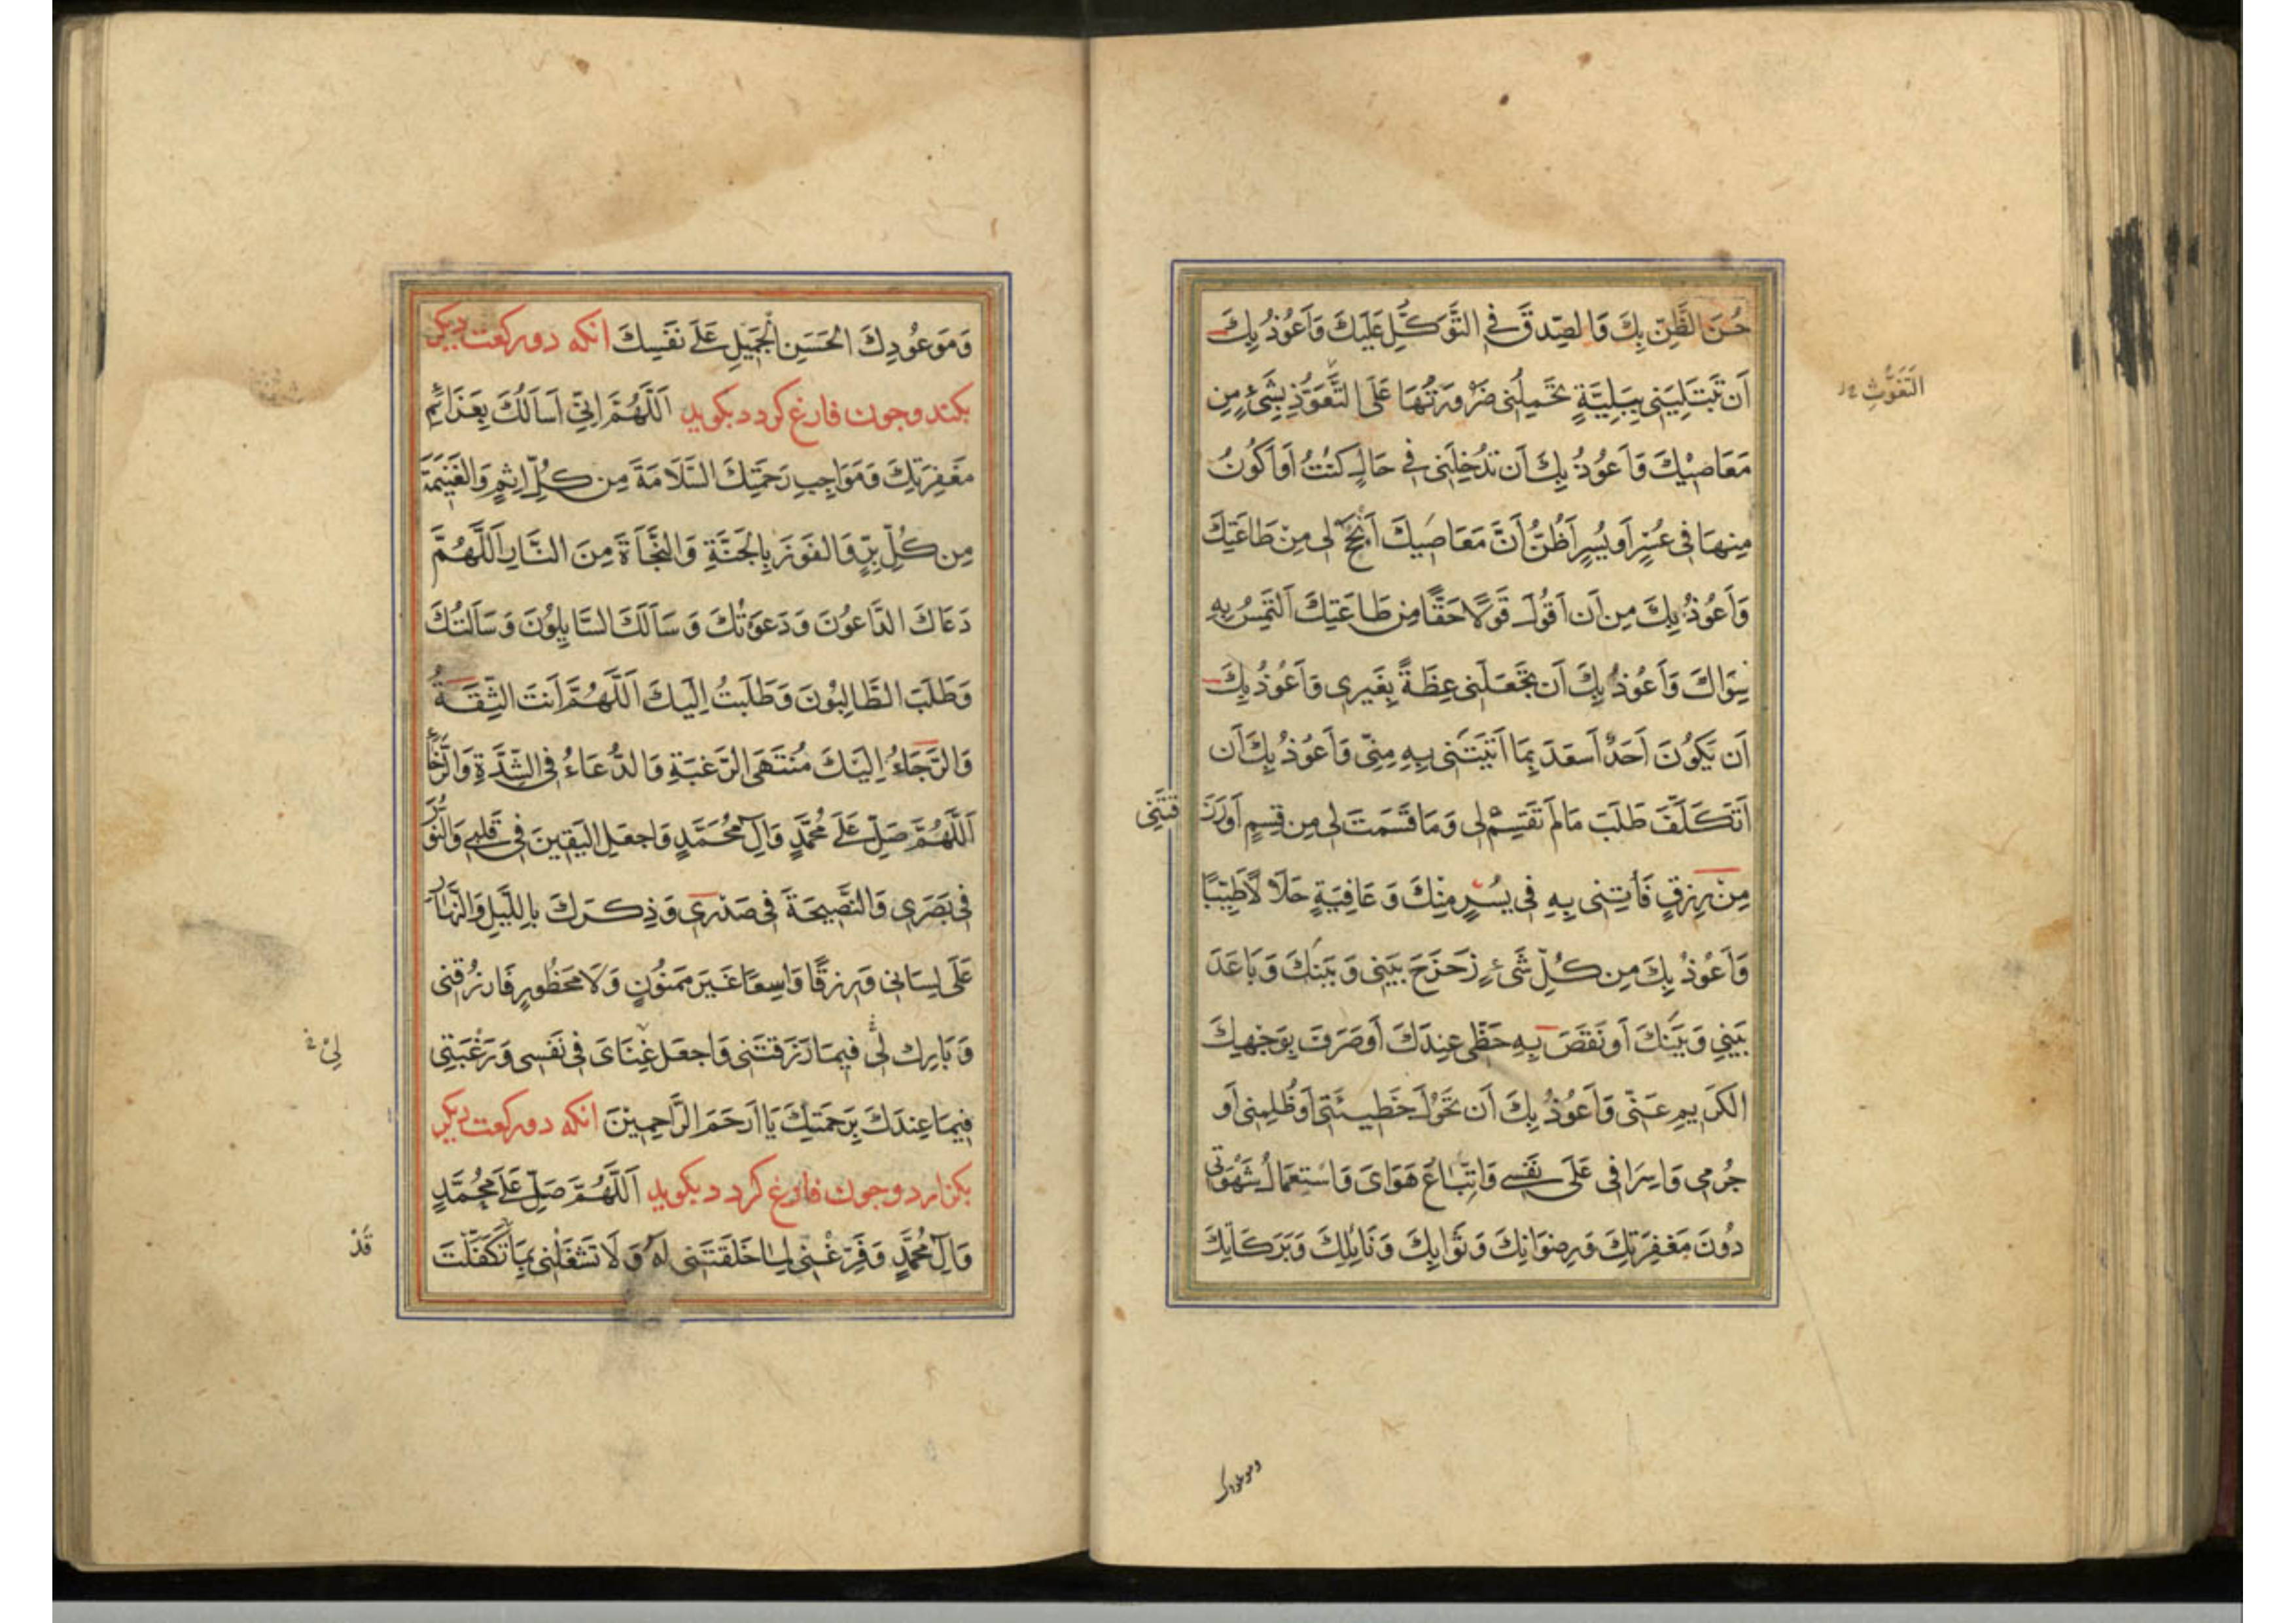 حُسْنَ الظَّنِّ بِكَ وَالصِّدقَ فِي التَّوَكُّلِ عَلَيْكَ وَاَعُوْذُ بِكَ
اَن تَبْتَلِيَنِى بِبَلِيَّةٍ تَحْمِلُنِى ضَرْوُرَتُهَا عَلَى التَّعَوُّذِ بِشَىْءٍ مِن
التَّغَوُّثِ
مَعَاصِيْكَ وَاَعُوْذُ بِكَ اَن تُدْخِلَنِى فِى حَالٍ كُنْتُ اَوْ اَكُونُ
مِنهَا فِى عُسْرٍ اَو يُسْرٍ اَظُنُّ اَنَّ مَعَاصِيكَ اَنْجَحُ لِى مِنْ طَاعَتِكَ
وَاَعُوْذُ بِكَ مِن اَن اَقُولَ قَوْلًا حَقًّا مِن طَاعَتِكَ اَلْتَمِسُ بِهِ
سِوَاكَ وَاَعُوْذُ بِكَ اَن تَجْعَلَنِى عِظَةً لِغَيرِى وَاَعُوْذُ بِكَ
اَن يَكُوْنَ اَحَدٌ اَسعَدَ بِمَا اٰتَيْتَنِى بِهِ مِنِّى وَاَعُوْذُ بِكَ اَن
اَتَكَلَّفَ طَلَبَ مَا لَمْ تَقْسِمْ لِى وَمَا قَسَمْتَ لِى مِن قِسمٍ اَو رَزَ
قتَنِى
مِنْ رِزقٍ فَأتِنِى بِهِ فِى يُسْرٍ مِنْكَ وَعَافِيَةٍ حَلَالًا طَيِّبًا
وَاَعُوْذُ بِكَ مِن كُلِّ شَىْءٍ زَحْزَحَ بَيْنِى وَبَيْنَكَ وَبَاعَدَ
بَيْنِي وَبَيْنَكَ اَو نَقَصَ بِهِ حَظِّى عِندَكَ اَو صَرَفَ بِوَجْهِكَ
الكَرِيمِ عَنِّى وَاَعُوْذُ بِكَ اَن تَحُوْلَ خَطِيئَتِى اَو ظُلمِى اَو
جُرْمِى وَاِسرَافِى عَلَى نَفسِى وَاتِّبَاعَ هَوَاىَ وَاسْتِعمَالُ شَهْوَتِى
دُونَ مَغْفِرَتِكَ وَرِضوَانِكَ وَثَوَابِكَ وَنَائِلِكَ وَبَرَكَاتِكَ
وموعودك
وَمَوعُودِكَ الحَسَنِ الجَمِيلِ عَلَى نَفْسِكَ انكه دو ركعت ديكر
بكند وچون فارغ كردد بكويد اَللّٰهُمَّ اِنِّى اَسأَلُكَ بِعَزَائِمِ
مَغْفِرَتِكَ وَمَوَاجِبِ رَحْمَتِكَ السَّلَامَةَ مِن كُلِّ اِثمٍ وَالغَنِيمَةَ
مِن كُلِّ بِرٍّ وَالفَوْزَ بِالجَنَّةِ وَالنَّجَاةَ مِنَ النَّارِ اَللّٰهُمَّ
دَعَاكَ الدَّاعُونَ وَدَعَوْتُكَ وَسَأَلَكَ السَّائِلُونَ وَسَأَلْتُكَ
وَطَلَبَ الطَّالِبُونَ وَطَلَبتُ اِلَيكَ اَللّٰهُمَّ اَنتَ الثِّقَةُ
وَالرَّجَاءُ اِلَيكَ مُنتَهَى الرَّغبَةِ وَالدُّعَاءُ فِى الشِّدَّةِ وَالرَّخَاءِ
اَللّٰهُمَّ صَلِّ عَلَى مُحَمَّدٍ وَاٰلِ مُحَمَّدٍ وَاجعَلِ اليَقِينَ فِى قَلبِى وَالنُّورَ
فِى بَصَرِى وَالنَّصِيحَةَ فِى صَدْرِى وَذِكرَكَ بِاللَّيلِ وَالنَّهَارِ
عَلَى لِسَانِى وَرِزقًا وَاسِعًا غَيرَ مَمنُونٍ وَلَا مَحظُورٍ فَارزُقنِى
وَبَارِك لِى فِيمَا رَزَقْتَنِى وَاجعَل غِنَاىَ فِى نَفسِى وَرَغْبَتِى
لِىْ
فِيمَا عِندَكَ بِرَحمَتِكَ يَا اَرحَمَ الرَّاحِمِينَ انكه دو ركعت ديكر
بكزارد وچون فارغ كردد بكويد اَللّٰهُمَّ صَلِّ عَلَى مُحَمَّدٍ
وَاٰلِ مُحَمَّدٍ وَفَرِّغْنِى لِمَا خَلَقتَنِى لَهُ وَلَا تَشغَلْنِى بِمَا تَكَفَّلْتَ
قَدْ